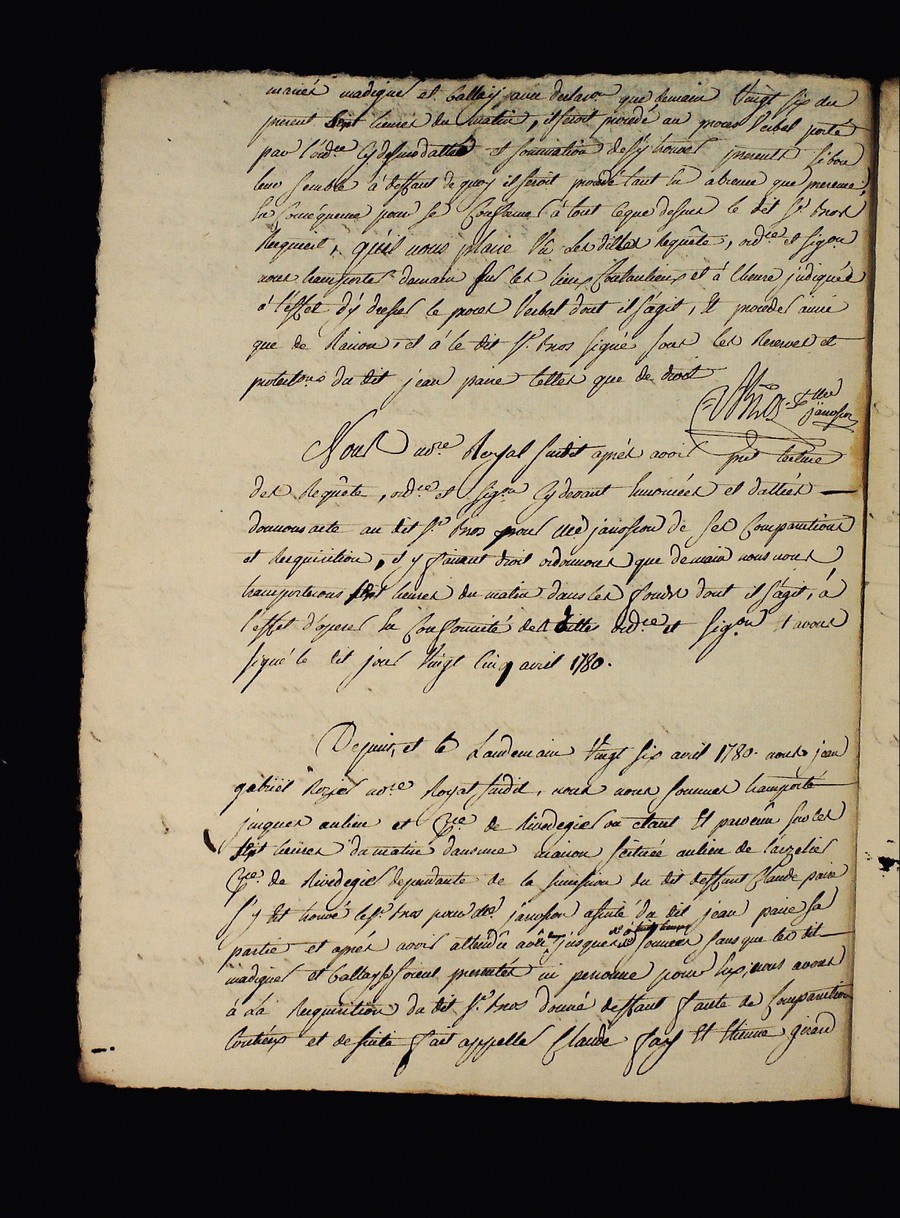 mariés madigier et ballay, avec declaron que demain Vingt six du
present sept heures du matin, il seroit procédé au proces Verbal porté
par l'ordce cydessus dattée et sommation de s'y trouver presents si bon
leur semble à deffaut de quoy il seroit procédé tant en absence que presence,
en conséquence pour se Conformer à tout ceque dessus le dit Sr bros
Requiert, qu'il nous plaise Vû les dittes Requête, ordce et sigon
nous transporter demain sur les lieux Contentieux et à l'heure indiquée
à l'effet d'y dresser le proces Verbal dont il s'agit, Et proceder ainsi
que de Raison, et à le dit Sr bros signé sous les Reserves et
protestons du dit jean paire telles que de droit
Bros pr Me
janosson
Nous nore Royal susdit aprés avoir pris lecture
des Requête, ordce et sigon cydevant énoncées et dattées
donnons acte au dit Sr bros pour Me janosson de ses Comparutions
et Requisition, et y faisant droit ordonnons que demain nous nous
transporterons sept heures du matin dans les fonds dont il s'agit, à
l'effet d'operer en Conformité des dittes ordce et sigon & avons
signé le dit jour Vingt Cinq avril 1780.
Depuis, et le Landemain Vingt six avril 1780. nous jean
gabriel Royer nore Royal susdit, nous nous sommes transporté
jusques au lieu et psse de Rivedegier ou etant Et parvenu sur les
sept heures du matin dans une maison scituée au lieu de
psse de Rivedegier dependante de la succession du dit deffunt Claude paire
s'y Est trouvé le Sr bros pour Me janosson assisté du dit jean paire sa
partie et aprés avoir attendu jusques à sonnées sans que les dit
madigier et ballay se soient presentés ni personne pour Eux, nous avons
à La Requisition du dit Sr bros donné deffaut faute de Comparution
Contr'eux et de suite fait appeller Claude fay Et Etienne girard